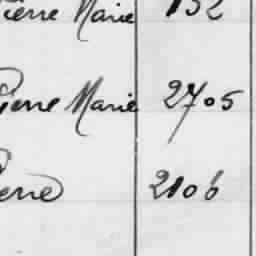 Pierre Marie 132
Pierre Marie 2705
Pierre 2106